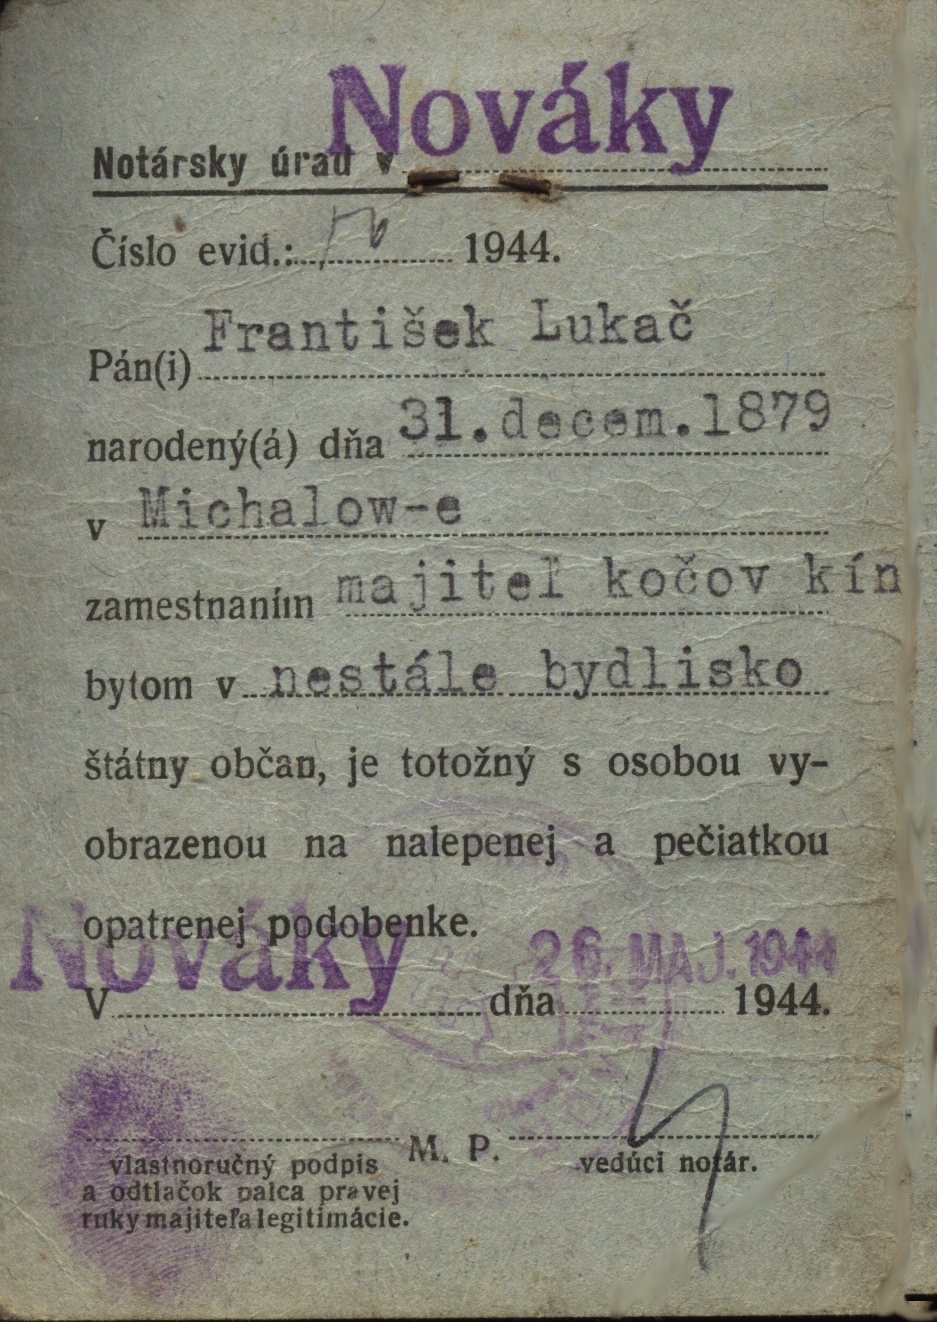 Nováky
Notársky úrad v
Číslo evid.: 1944.
Pán(i) František Lukač
narodený(á) dňa 31.decem.1879
v Michalow-e
zamestnaním majiteľ kočov kín
bytom v nestále bydlisko
štátny občan, je totožný s osobou vy-
obrazenou na nalepenej a pečiatkou
opatrenej podobenke.
Nováky 26. MAJ. 1944
V dňa 1944.
M. P.
vlastnoručný podpis vedúci notár.
a odtlačok palca pravej
ruky majiteľa legitimácie.